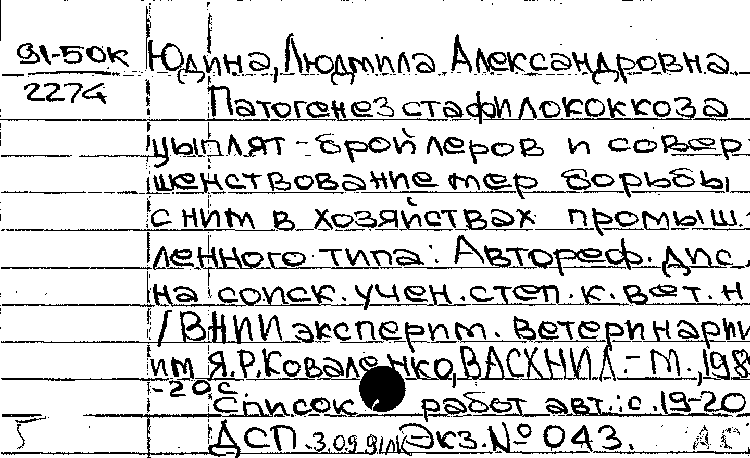 91-50к Юдина, Людмила Александровна
2274 Патогенез стафилококкоза
цыплят-бройлеров и совер
шенствование мер борьбы
с ним в хозяйствах промыш.
ленного типа: Автореф. дис.
на соиск. учен. степ. к. вет. н
/ВНИИ эксперим. ветеринарии
им Я.Р. Коваленко, ВАСХНИЛ.-М., 198
-20с.
Список работ авт.: с.19-20
ДСП. 3.09.91 Экз. № 043. АС